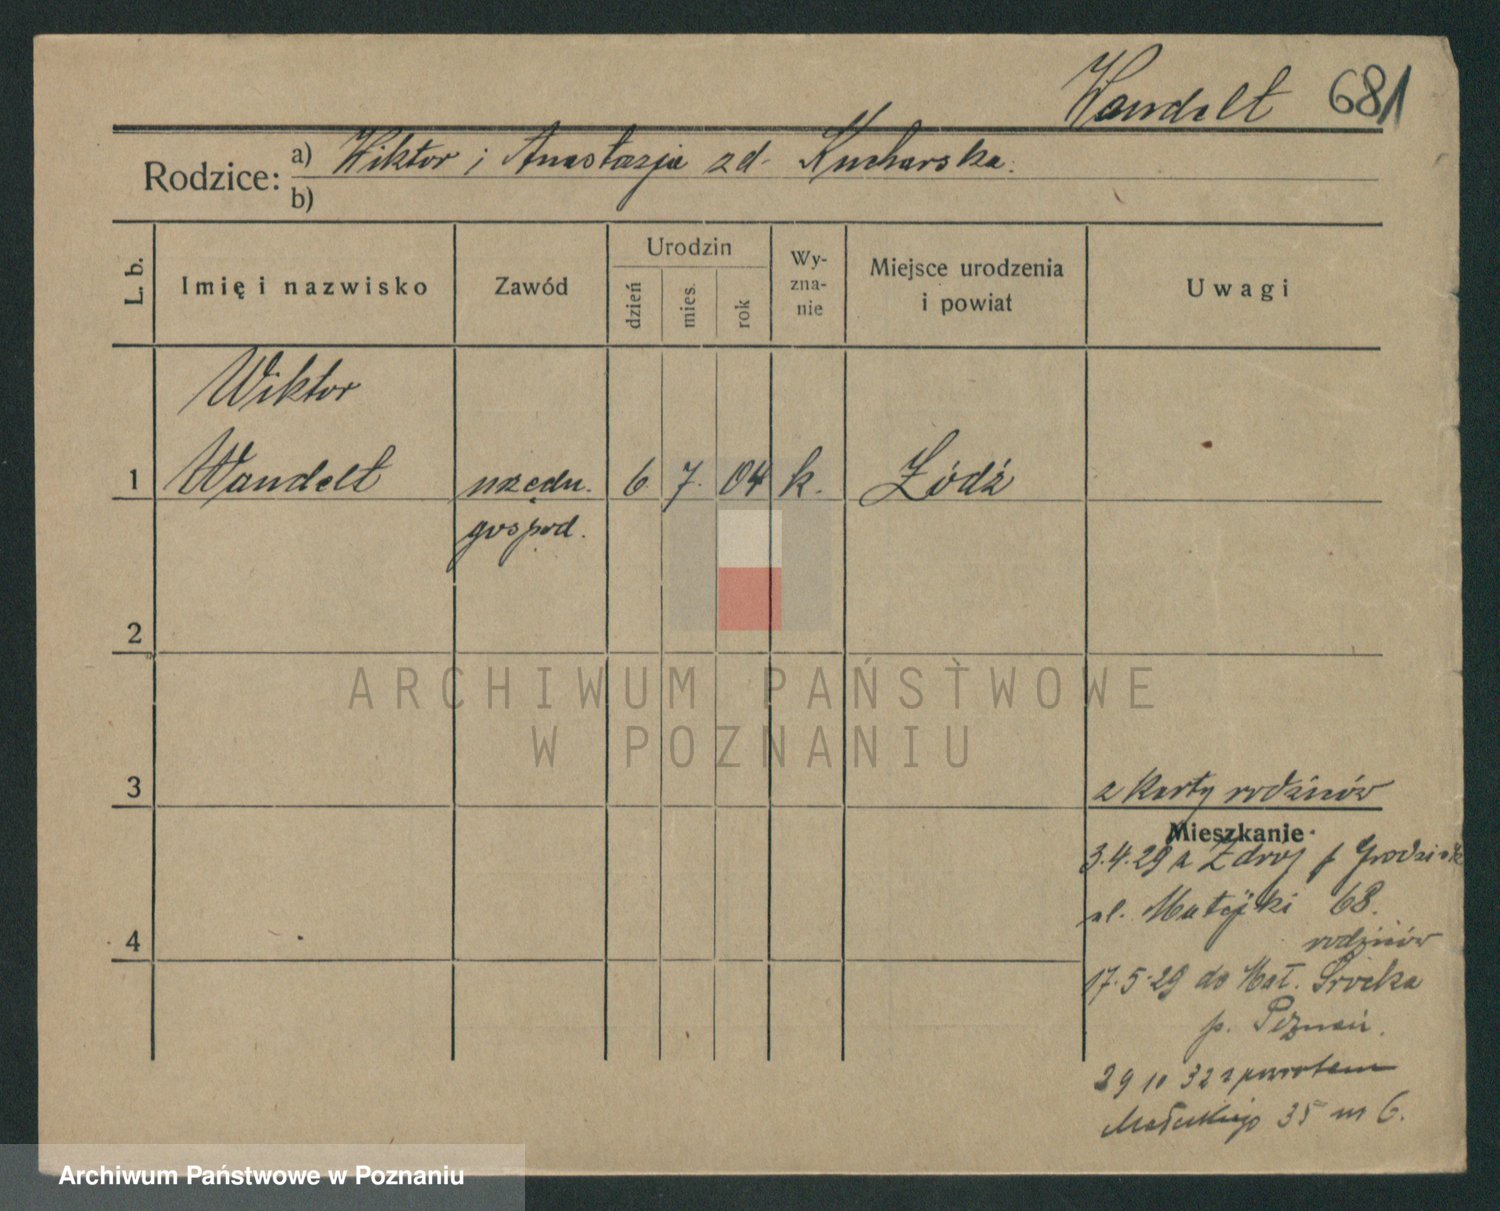 Wandelt 681
Rodzice: a) Wiktor i Anastazja zd. Kucharska.
b)
L. b. Imię i nazwisko Zawód Urodzin dzień mies. rok Wy-zna-nie Miejsce urodzenia i powiat Uwagi
Wiktor
1 Wandelt urzędn. 6 7. 04 k. Łódź
gospod.
2
3
z karty rodziców
Mieszkanie
3.4.29 z Zdrój p Grodzisk
ul. Matejki 68.
rodziców
4
17.5.29 do Mał. Srocka
p. Poznań.
29 10 32 z powrotem
Małeckiego 35 m 6.
ARCHIWUM PAŃSTWOWE
W POZNANIU
Archiwum Państwowe w Poznaniu